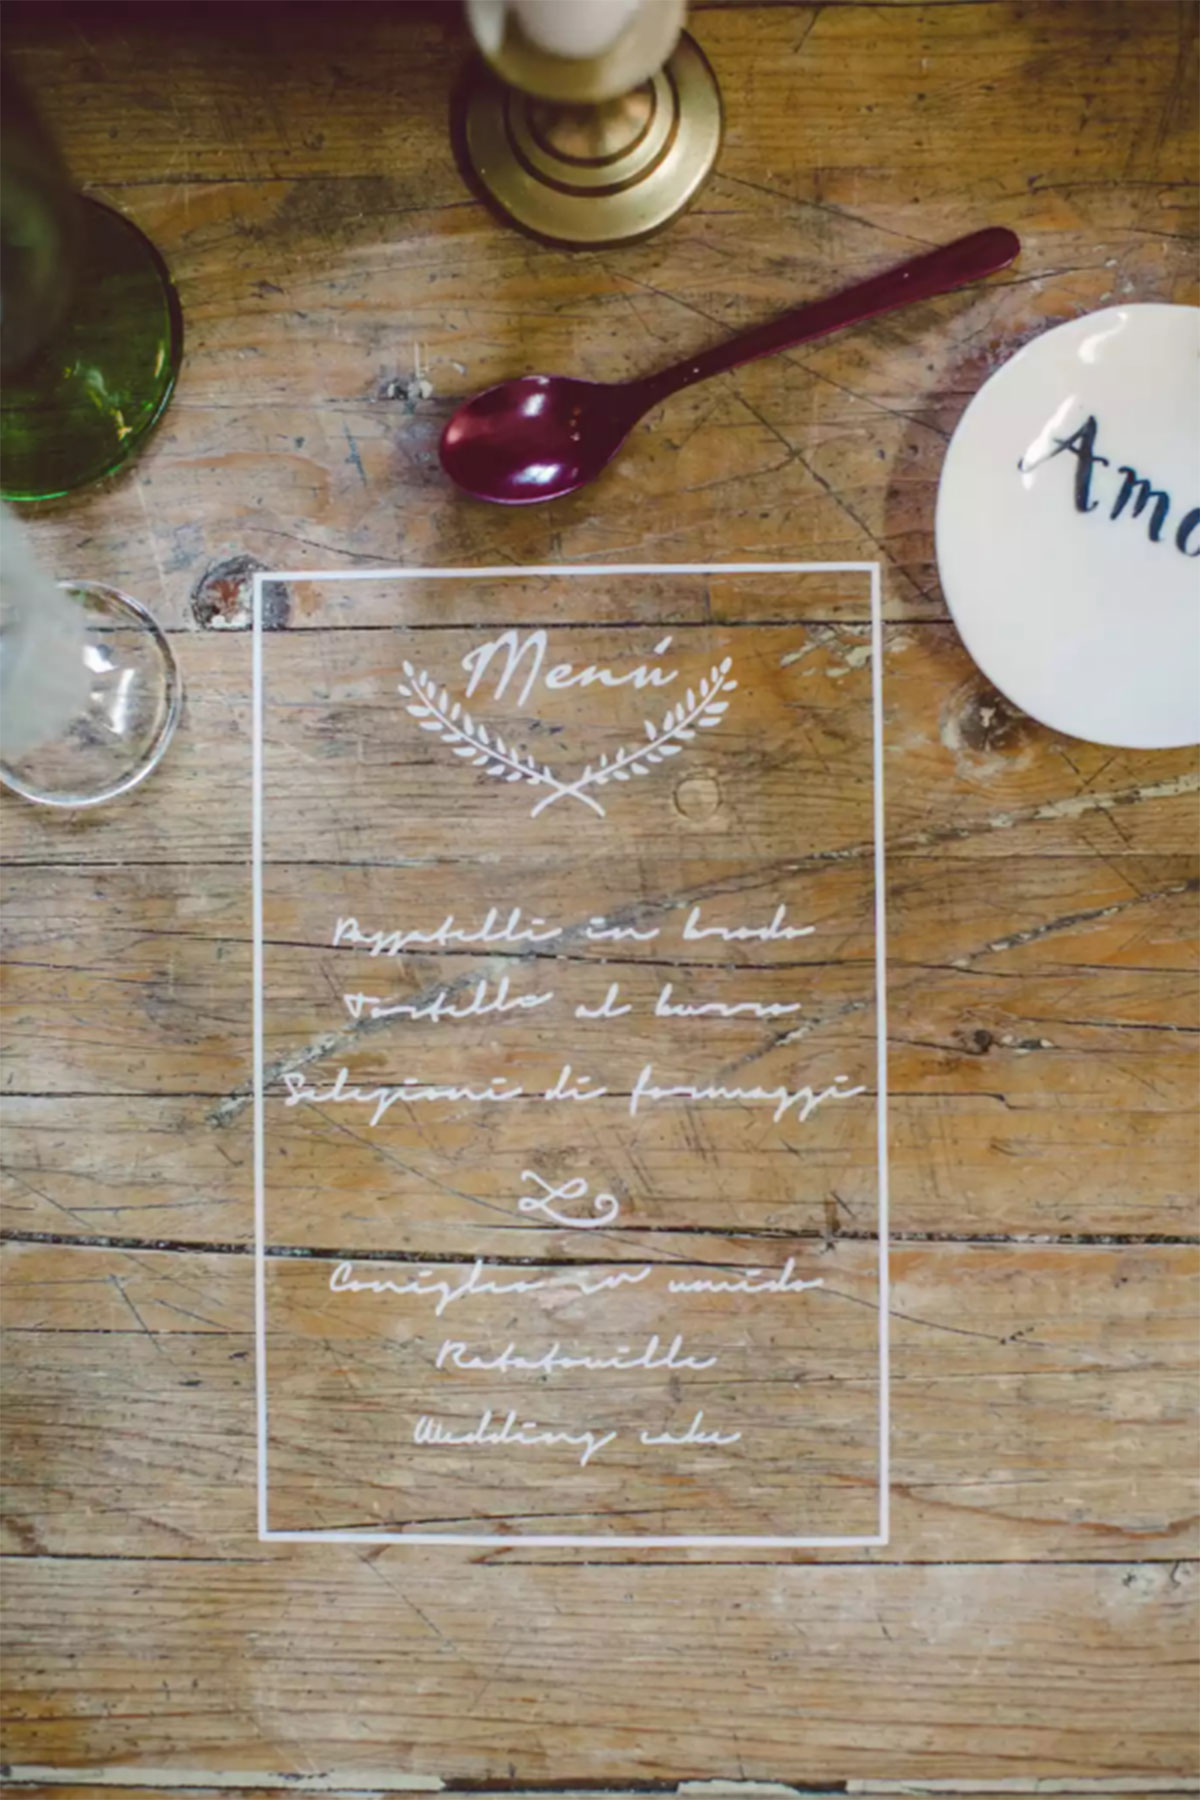 Menú
Amo
Pazzatelli in brodo
Tortello al burro
Selezioni di formaggi
Coniglio in umido
Ratatouille
Wedding cake